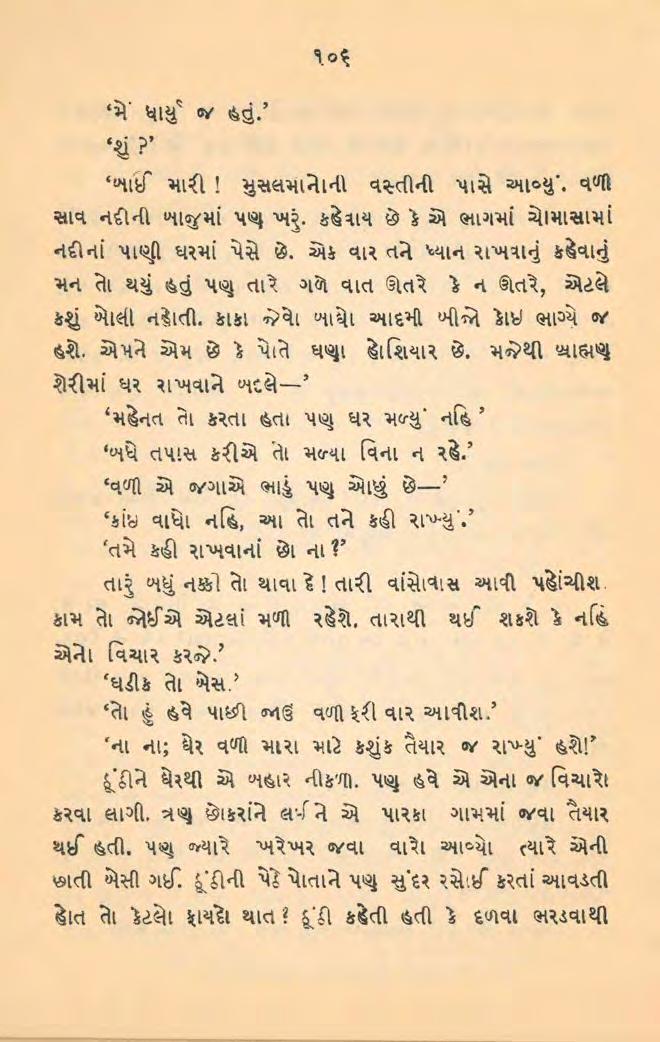 ૧૦૬
‘મેં ધાર્યું જ હતું.’
‘શું ?’
‘બાઈ મારી ! મુસલમાનોની વસ્તીની પાસે આવ્યું. વળી
સાવ નદીની બાજુમાં પણ ખરૂં. કહેવાય છે કે એ ભાગમાં ચોમાસામાં
નદીનાં પાણી ઘરમાં પેસે છે. એક વાર તને ધ્યાન રાખવાનું કહેવાનું
મન તો થયું હતું પણ તારે ગળે વાત ઊતરે કે ન ઊતરે, એટલે
કશું બોલી નહોતી. કાકા જેવો બાઘો આદમી બીજો કોઇ ભાગ્યે જ
હશે. એમને એમ છે કે પોતે ઘણા હોશિયાર છે. મજેથી બ્રાહ્મણ
શેરીમાં ઘર રાખવાને બદલે—’
‘મહેનત તો કરતા હતા પણ ઘર મળ્યું નહિ ’
‘બધે તપાસ કરીએ તો મળ્યા વિના ન રહે.’
‘વળી એ જગાએ ભાડું પણ ઓછું છે—’
‘કાંઇ વાંધો નહિ, આ તો તને કહી રાખ્યું.’
‘તમે કહી રાખવાનાં છો ના ?’
તારૂં બધું નક્કી તો થાવા દે ! તારી વાંસોવાસ આવી પહોંચીશ.
કામ તો જોઈએ એટલાં મળી રહેશે. તારાથી થઈ શકશે કે નહિં
એનો વિચાર કરજે.’
‘ઘડીક તો બેસ.’
‘તો હું હવે પાછી જાઉં વળી ફરી વાર આવીશ.’
‘ના ના; ઘેર વળી મારા માટે કશુંક તૈયાર જ રાખ્યું હશે!’
ઠૂંઠીને ઘેરથી એ બહાર નીકળી. પણ હવે એ એના જ વિચારો
કરવા લાગી. ત્રણ છોકરાંને લઈ ને એ પારકા ગામમાં જવા તૈયાર
થઈ હતી. પણ જ્યારે ખરેખર જવા વારો આવ્યો ત્યારે એની
છાતી બેસી ગઈ. ઠૂંઠીની પેઠે પોતાને પણ સુંદર રસોઈ કરતાં આવડતી
હોત તો કેટલો ફાયદો થાત ? ઠૂંઠી કહેતી હતી કે દળવા ભરડવાથી